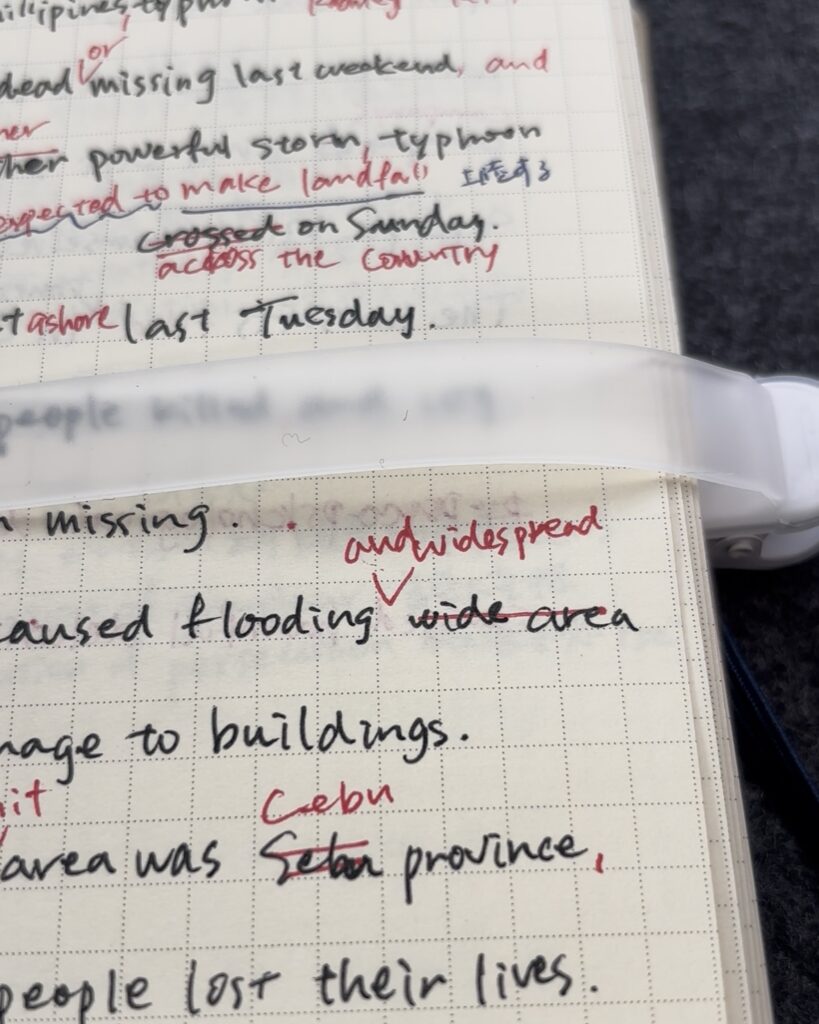 or
dead missing last weekend, and
powerful storm, typhoon
expected to make landfall 上陸する
crossed on Sunday.
across the country
ashore last Tuesday.
people killed and
missing.
and widespread
caused flooding wide area
mage to buildings.
hit Cebu
area was Sebu province,
people lost their lives.